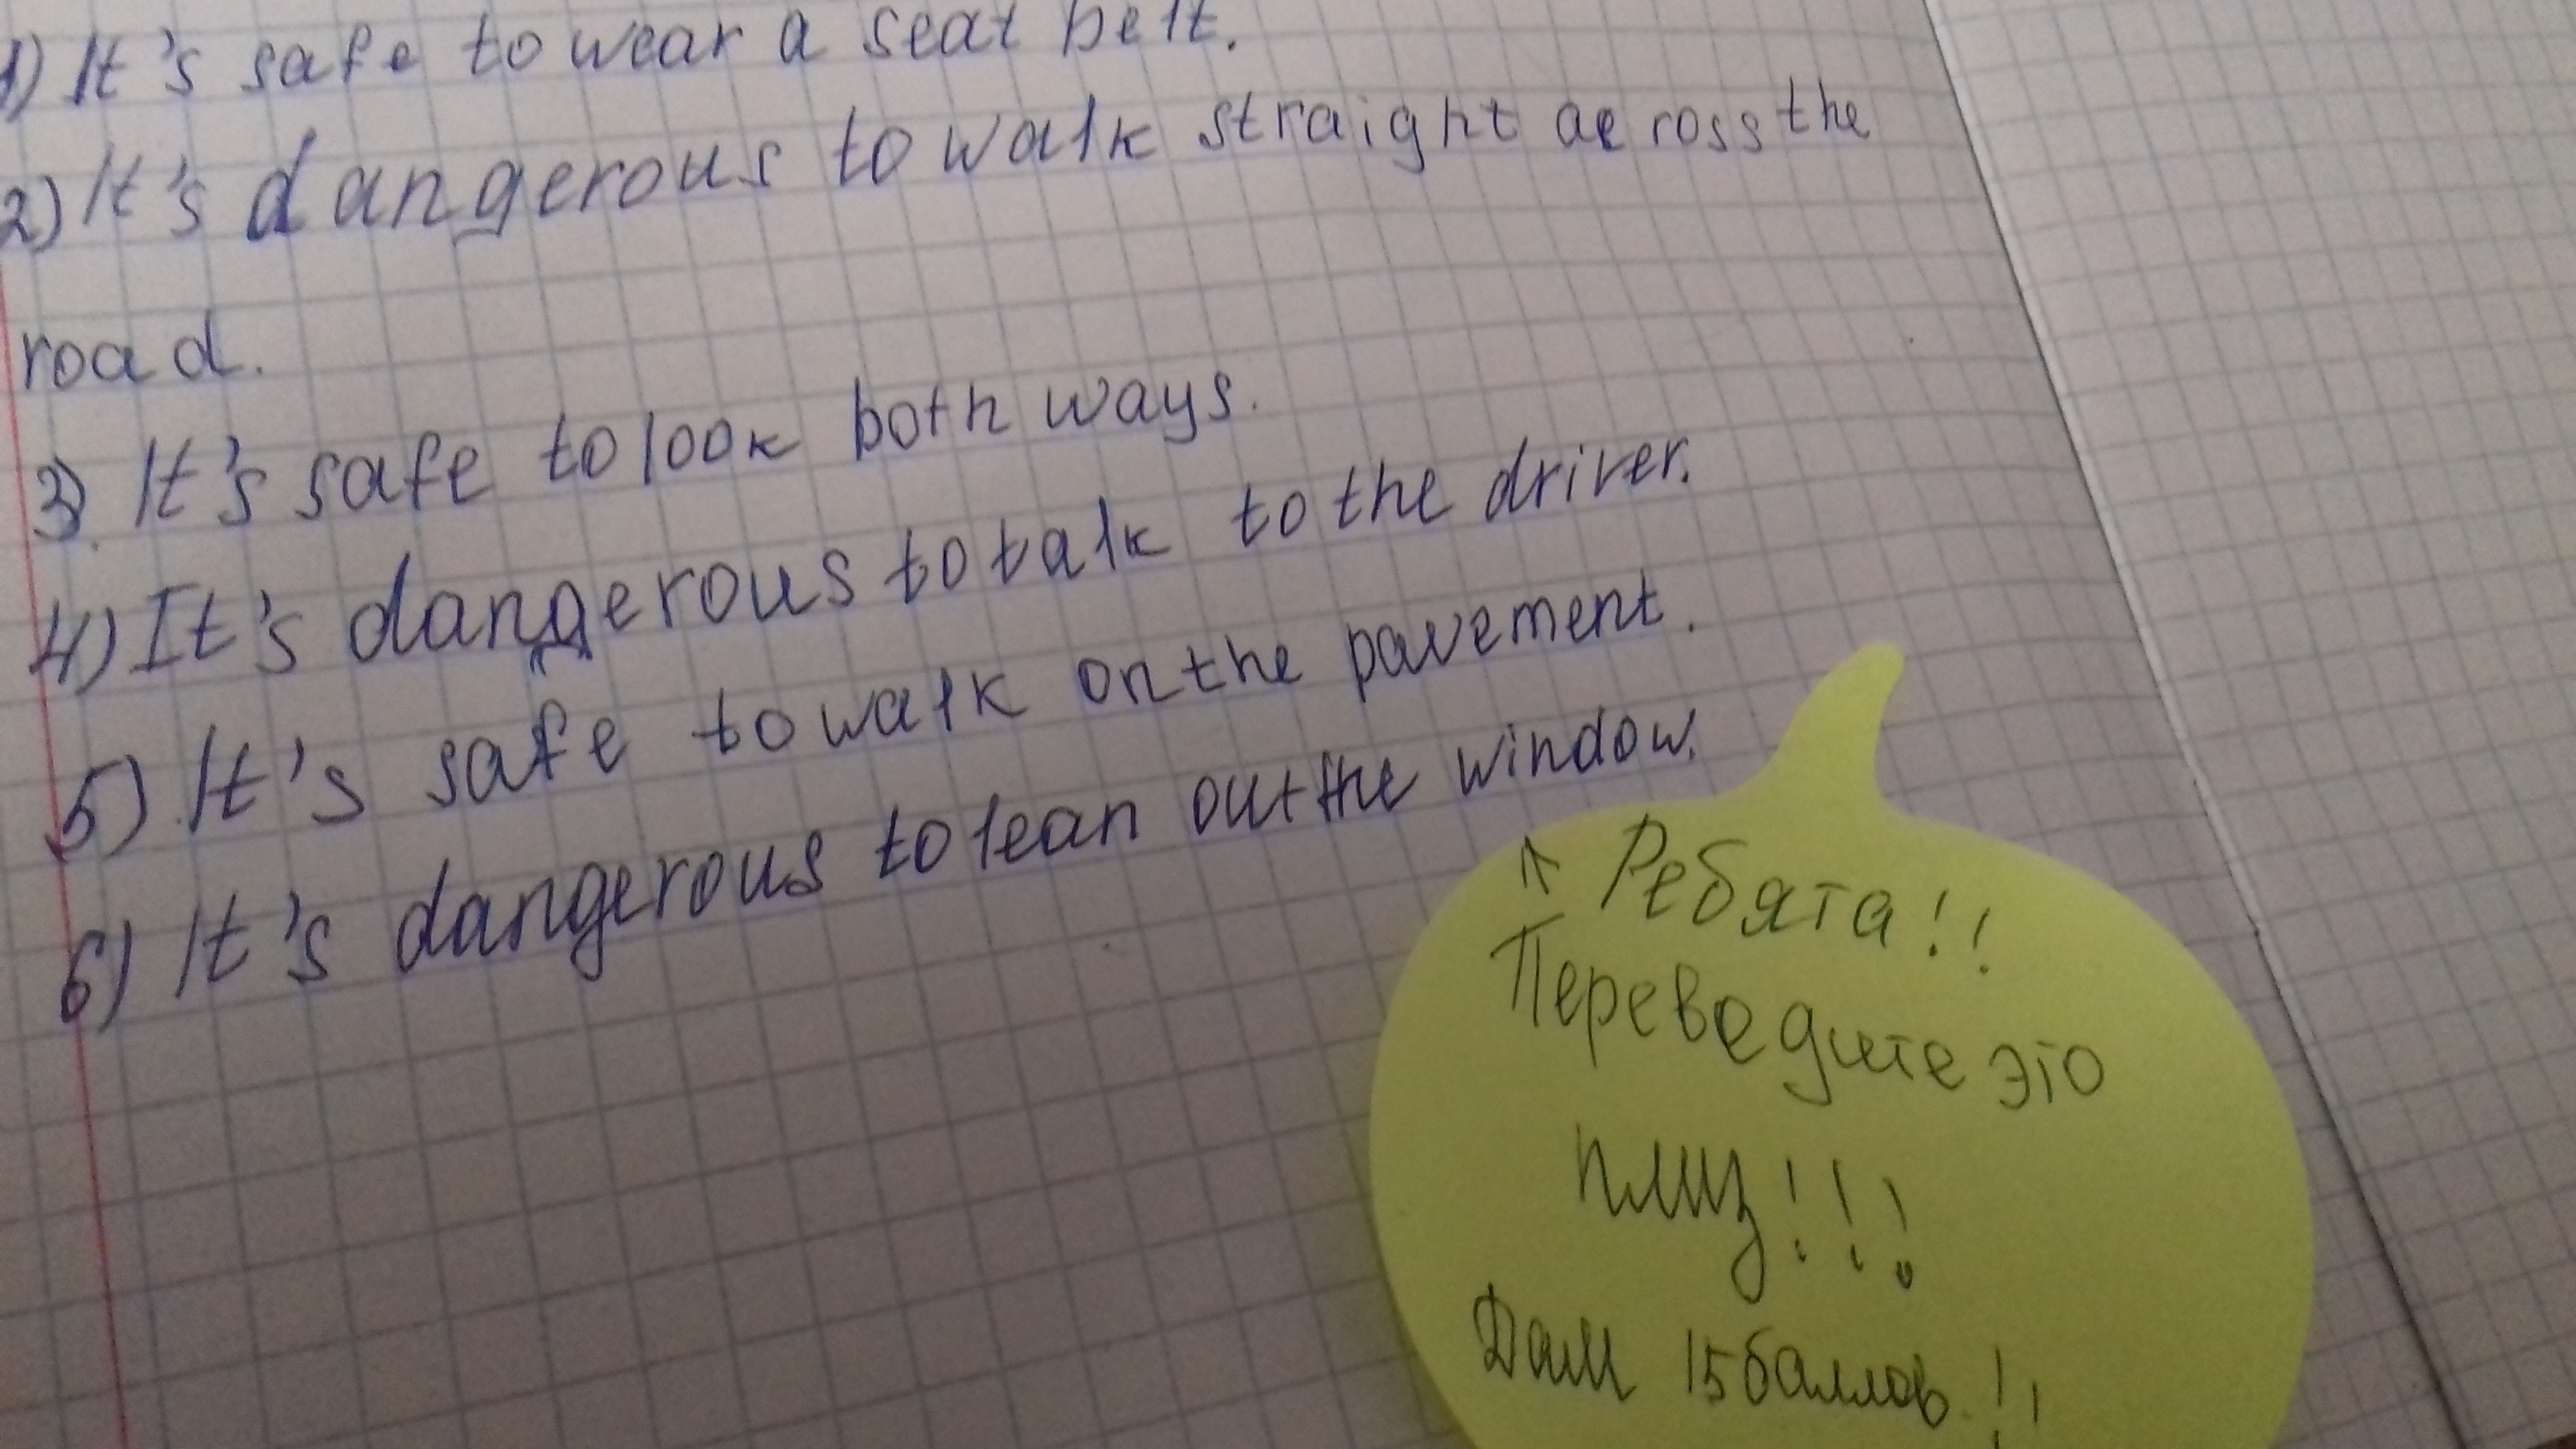 1) It's safe to wear a seat belt.
2) It's dangerous to walk straight across the
road.
3) It's safe to look both ways.
4) It's dangerous to talk to the driver.
5) It's safe to walk on the pavement.
6) It's dangerous to lean out the window.
↑ Ребята!!
Переведите это
плиз!!!
Дам 15 баллов!!